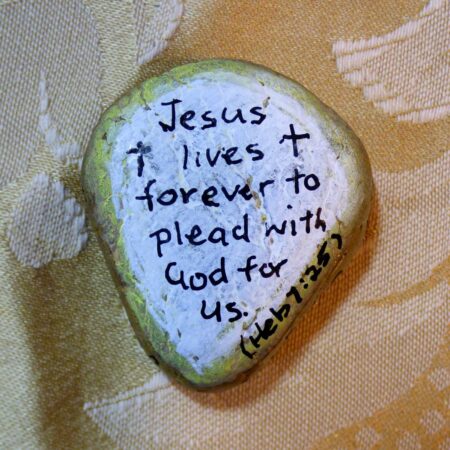 Jesus
† lives †
forever to
plead with
God for
us.
(Heb 7:25)